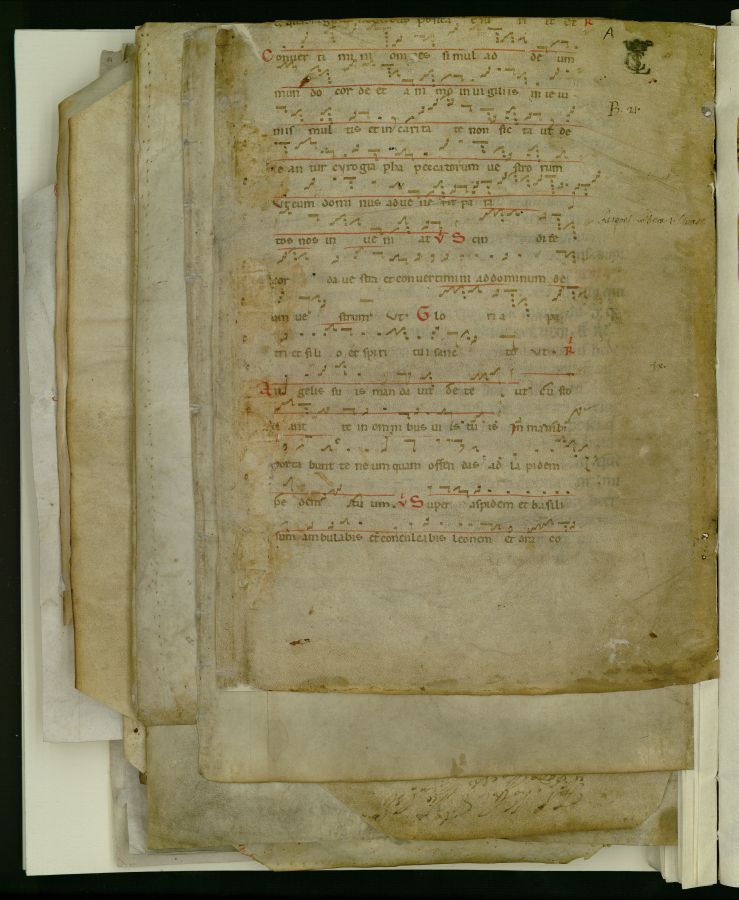 A
Conver ti mi ni om nes simul ad de um
mun do cor de et a ni mo in vi giliis in ie iu
niis mul tis et in carita te non fic ta ut de
le an tur cyrogra pha peccatorum ve stro rum
Ut cum domi nus adve ne rit pa ra
B. 21.
tos nos in ve ni at V S cin di te
cor da ve stra et convertimini ad dominum de
um ve strum Ut Glo ri a pa
tri et fi li o et spiri tui sanc to Ut R
An gelis su is man da vit de te ut cu sto
di ant te in omni bus vi is tu is In manib
porta bunt te ne umquam offen das ad la pidem
pe dem tu um V Super aspidem et basili
scum ambulabis et conculcabis leonem et dra co